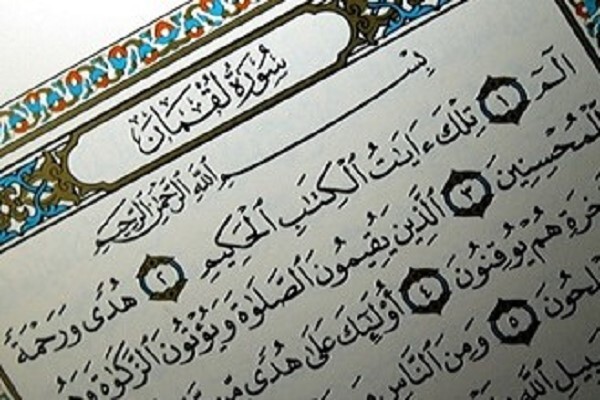 سُورَةُ لُقْمَان
بِسْمِ اللَّهِ الرَّحْمَٰنِ الرَّحِيمِ
الٓمٓ ١ تِلْكَ ءَايَٰتُ ٱلْكِتَٰبِ ٱلْحَكِيمِ ٢ هُدًى وَرَحْمَةً
لِّلْمُحْسِنِينَ ٣ ٱلَّذِينَ يُقِيمُونَ ٱلصَّلَوٰةَ وَيُؤْتُونَ ٱلزَّكَوٰةَ وَهُم
هُمْ يُوقِنُونَ ٤ أُو۟لَٰٓئِكَ عَلَىٰ هُدًى مِّن
٥ وَمِنَ ٱلنَّاسِ
ٱللَّهِ